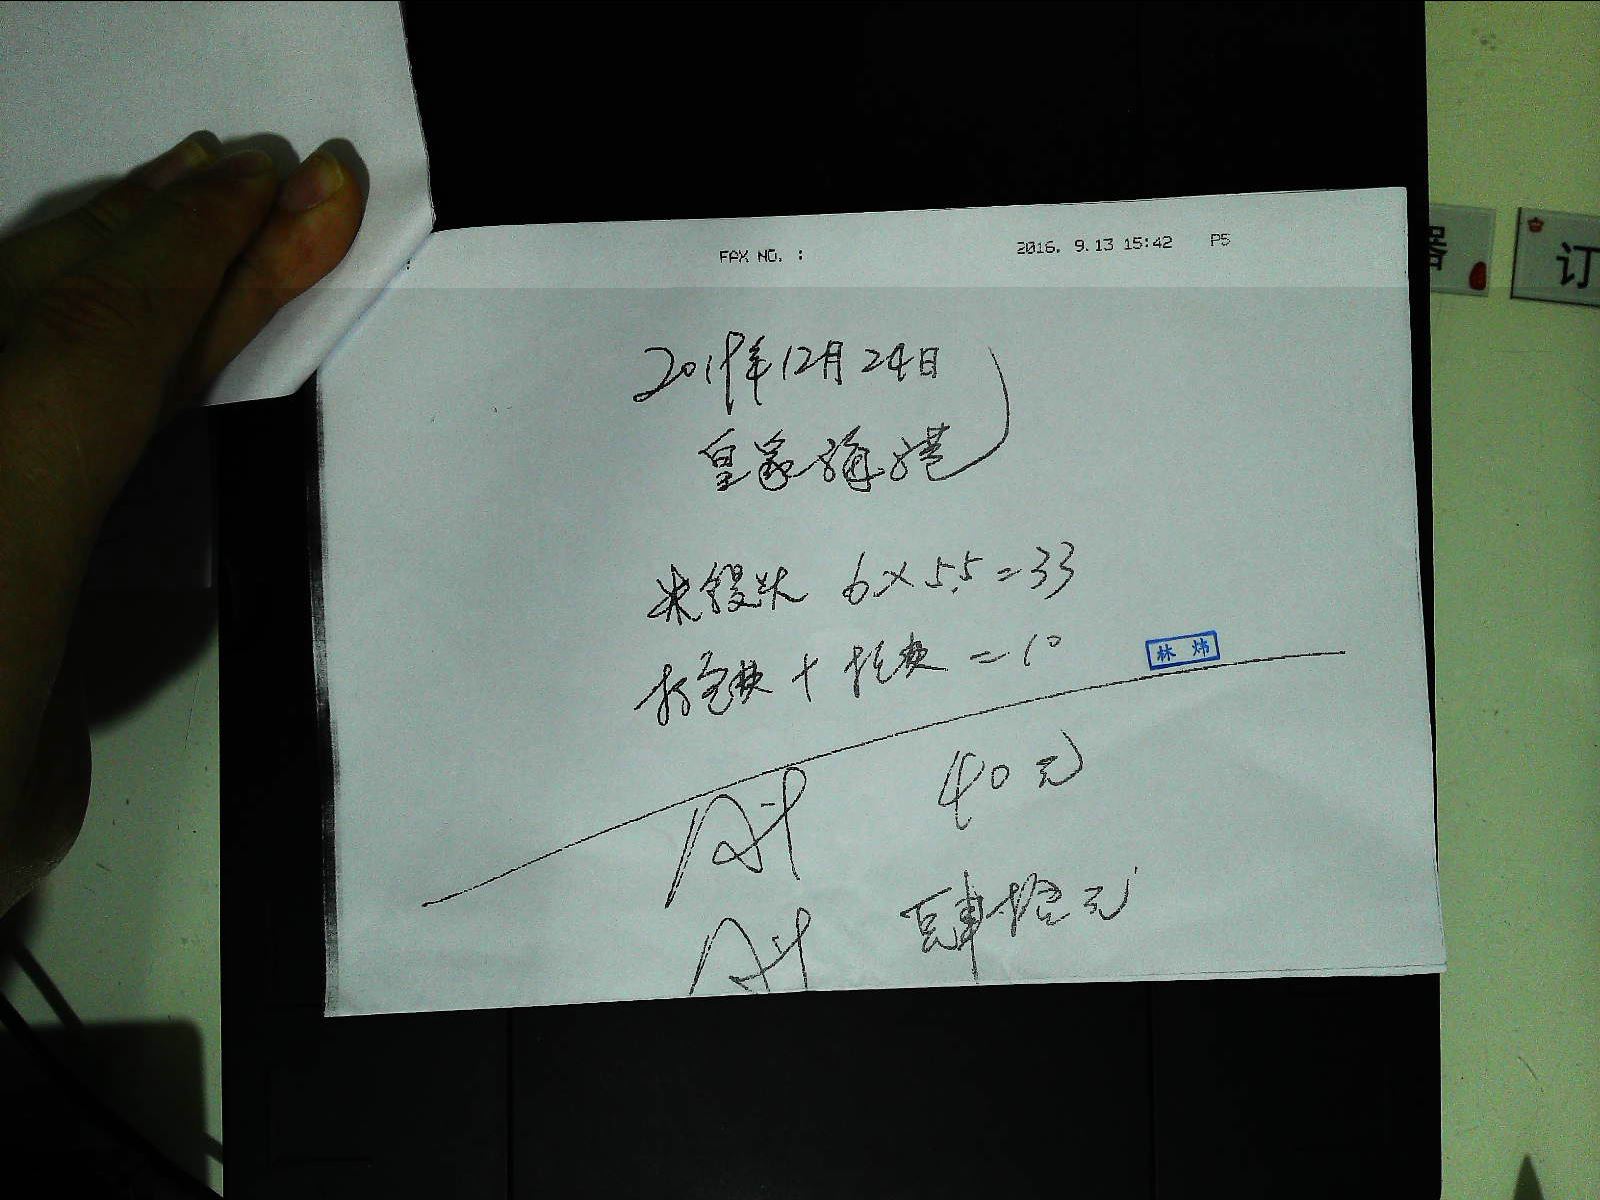 FAX NO. :
2016. 9.13 15:42 P5
器
订
2019年12月24日
皇家海港
米馒头 6×5.5=33
打包费+托费=10
林 炜
40元
肆拾元